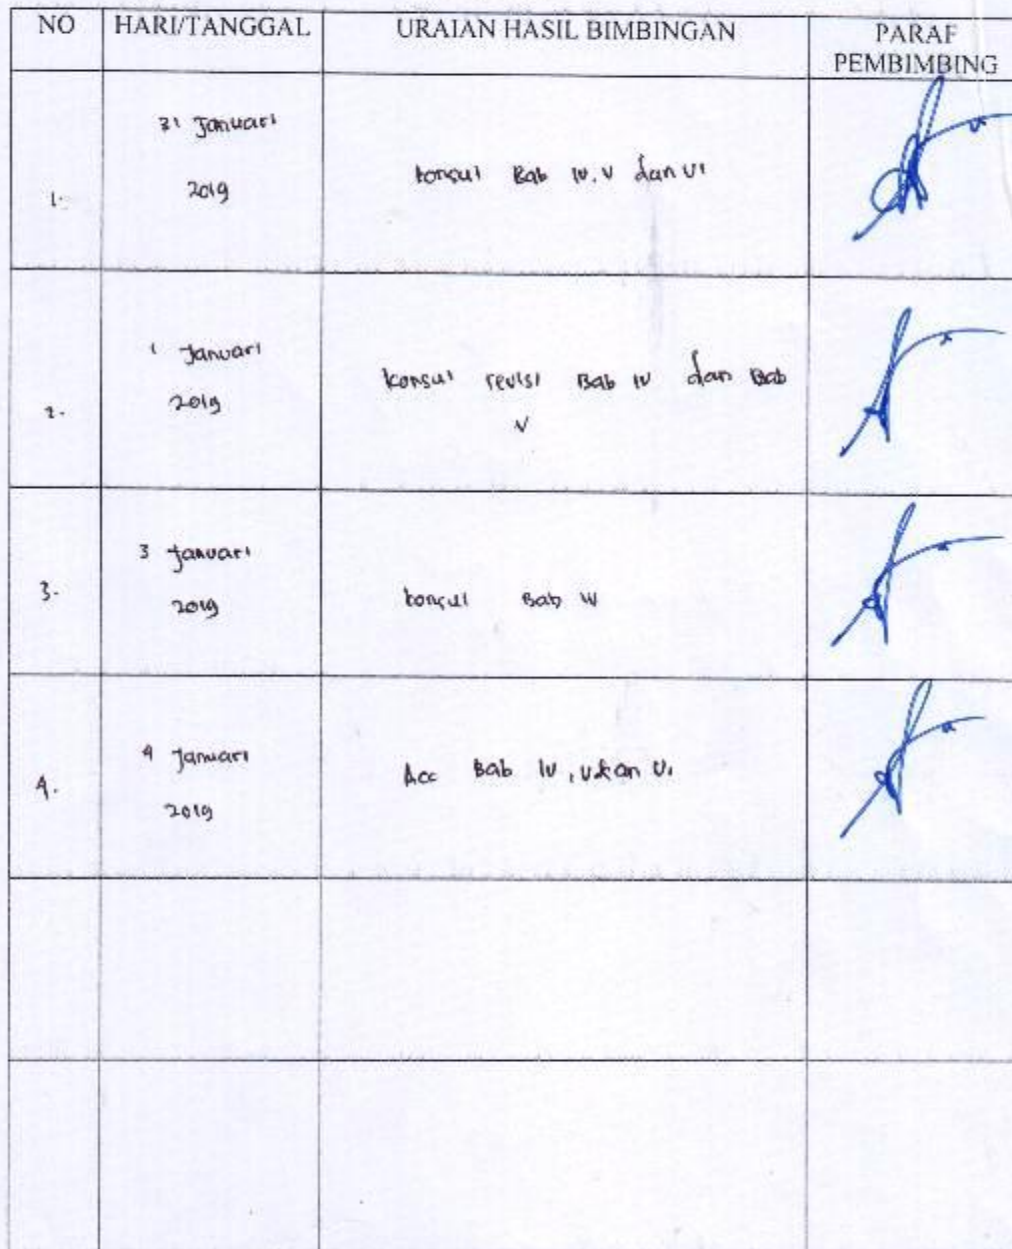 NO HARI/TANGGAL URAIAN HASIL BIMBINGAN PARAF
PEMBIMBING
31 Januari
1. 2019 konsul Bab IV, V dan VI
1 Januari
2. 2019 konsul revisi Bab IV dan Bab
V
3 Januari
3. 2019 konsul Bab IV
4 Januari
4. 2019 Acc Bab IV, V dan VI